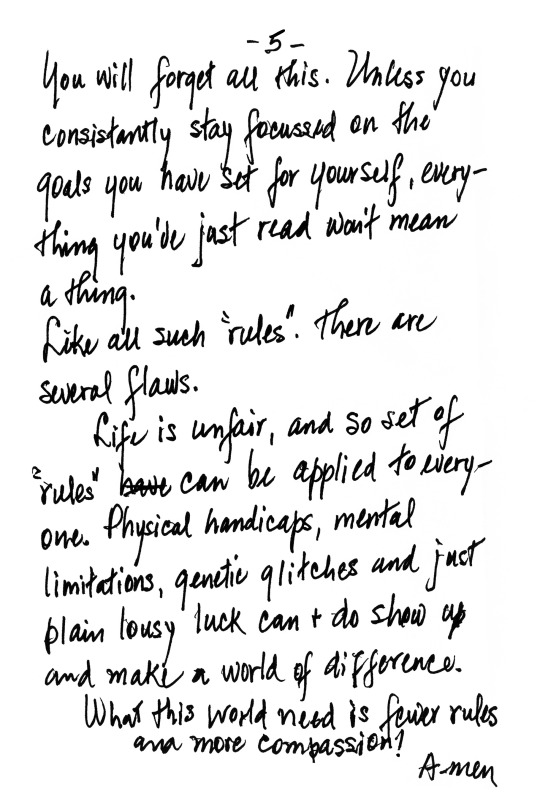 -5-
You will forget all this. Unless you
consistantly stay focussed on the
goals you have set for yourself, every-
thing you've just read won't mean
a thing.
Like all such "rules". There are
several flaws.
Life is unfair, and so set of
"rules" have can be applied to every-
one. Physical handicaps, mental
limitations, genetic glitches and just
plain lousy luck can + do show up
and make a world of difference.
What this world need is fewer rules
and more compassion!
A-men